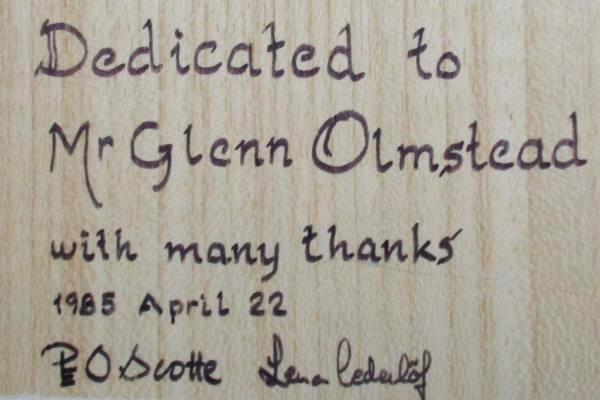 Dedicated to
Mr Glenn Olmstead
with many thanks
1985 April 22
P O Scotte Lena Cederlöf